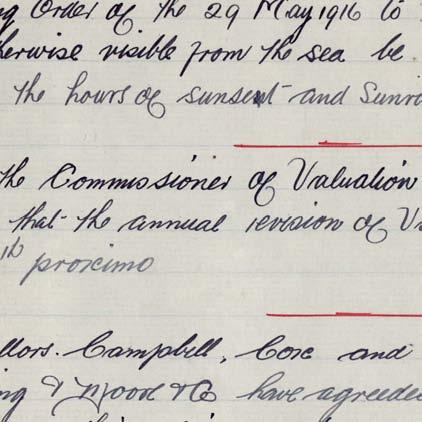 ng Order of the 29 May 1916 to
herwise visible from the sea be
the hours of sunset and Sunri
the Commissioner of Valuation
that the annual revision of Va
th proximo
llors. Campbell, Coxe and
ng & Moore & Co have agreed